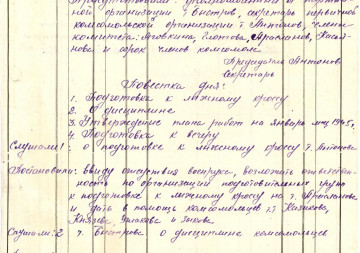 ного организации т. Быстров, секретарь первичной
комсомольской организации т. Антонов, члены
комитета: Яговкина, Глотова, Арасланов, Касья-
нова и сорок членов комсомола.
Председатель Антонов
Секретарь
Повестка дня:
1. Подготовка к лыжному кроссу
2. О дисциплине
3. Утверждение плана работ на январь м-ц 1945 г.
4. Подготовка к вечеру
Слушали: о подготовке к лыжному кроссу т. Антонова
Постановили: ввиду отсутствия военрука, возложить ответствен-
ность по организации подготовительных групп
к подготовке к лыжному кроссу на т. Арасланова
и дать в помощь комсомольцев т.т. Казакова,
Князева, и Зыкова.
Слушали: 2 т. Быстрова о дисциплине комсомольцев